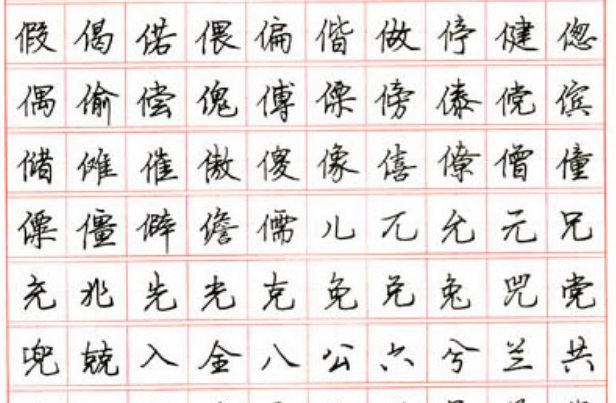 假偈偌偎偏偕做停健偬
偶偷偿傀傅傈傍傣傥傧
储傩催傲傻像僖僚僧僮
僳僵僻儋儒儿兀允元兄
充兆先光克免兑兔兕党
兜兢入全八公六兮兰共